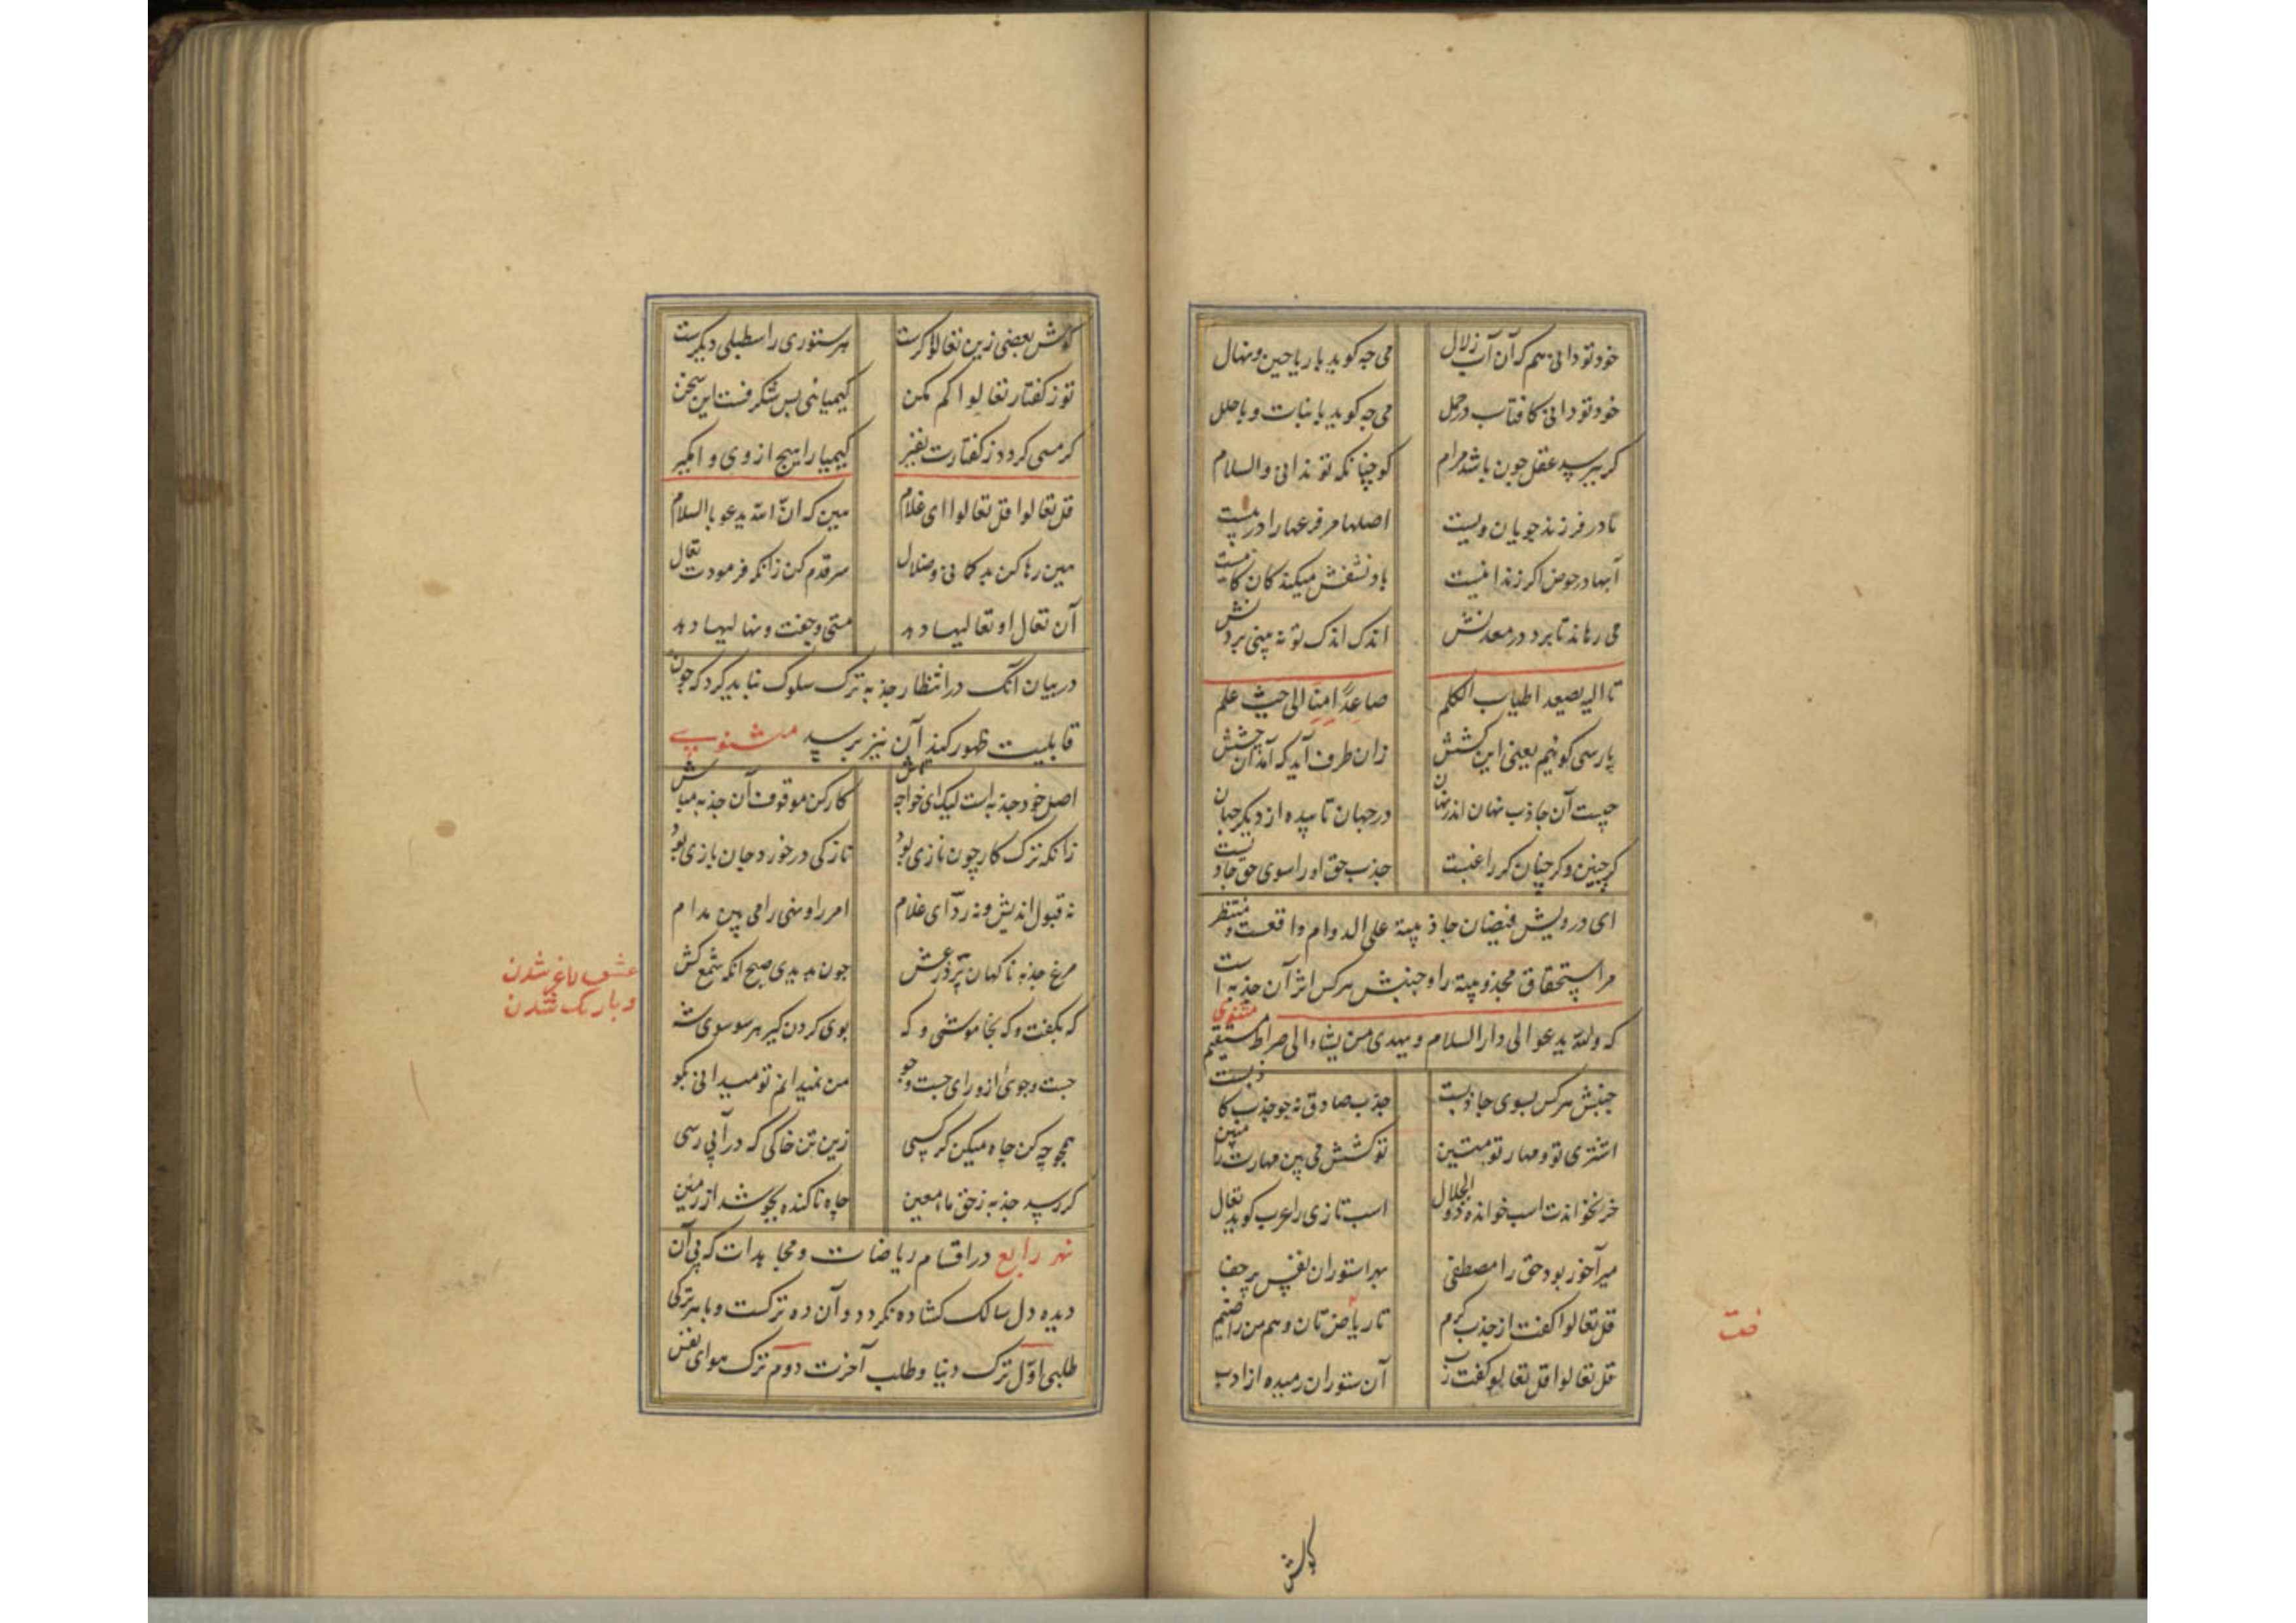 خود تو دانی هم که آن آب زلال می چه کوید با ریاحین و نهال
خود تو دانی کافتاب در حمل می چه کوید با نبات و با حلل
کر بپرسد عقل چون باشد مرام کو چنانکه تو ندانی والسلام
مادر فرزند جویان ویست اصلها مر فرعها را در پیست
آبها در حوض اکر زندانیست باد نشفش میکند کان کانیست
می رهاند تا برد در معدنش اندک اندک تو نه بینی بردنش
تا الیه یصعد اطیاب الکلم صاعدا منا الی حیث علم
پارسی کوئیم یعنی این کشش زان طرف آید که آمد آن چشش
چیست آن جاذب نهان اندر نهان در جهان تابیده از دیکر جهان
کر چنین و کر چنان کر راغبست جذب حق او را سوی حق جاذبست
ای درویش فیضان جاذبیة علی الدوام واقعست و منتظر
مر استحقاق مجذوبیة را و جنبش هر کس اثر آن جذبه است
که والله یدعو الی دار السلام و یهدی من یشاء الی صراط مستقیم مثنوی
جنبش هر کس بسوی جاذبست جذب صادق نه چو جذب کاذبست
اشتری تو و مهار تو متین تو کشش می بین مهارت را مبین
خر نخواندت اسب خواندت ذوالجلال اسب تازی را عرب کوید تعال
میر آخور بود حق را مصطفی بهر استوران نفس پر جفا
قل تعالوا کفت از جذب کرم تا ریاضتان دهم من رایضم
قل تعالوا قل تعالو کفت رب آن ستوران رمیده از ادب
کوش
کوش بعضی زین تعالوا کرست هر ستوری را سطبلی دیکرست
تو ز کفتار تعالوا کم مکن کیمیائی بس شکرفست این سخن
کر مسی کردد ز کفتارت نفیر کیمیا را هیچ از وی وامکیر
قل تعالوا قل تعالوا ای غلام هین که ان الله یدعو بالسلام
هین رها کن بدکانی و ضلال سر قدم کن زانکه فرمودت تعال
آن تعال او تعالیها دهد مستی و جفت و نهالیها دهد
در بیان آنک در انتظار جذبه ترک سلوک نباید کرد که چون
قابلیت ظهور کند آن نیز برسد مثنوی
اصل خود جذبه است لیک ای خواجه تاش کار کن موقوف آن جذبه مباش
زانکه ترک کار چون نازی بود ناز کی در خورد جان بازی بود
نه قبول اندیش و نه رد ای غلام امر را و نهی را می بین مدام
مرغ جذبه ناکهان پرد ز عش چون بدیدی صبح انکه شمع کش
که بکفت و که بخاموشی و که بوی کردن کیر هر سو سوی شه
جست و جوی از ورای جست و جو من نمیدانم تو میدانی بکو
همچو چه کن چاه میکن کر کسی زین تن خاکی که در آبی رسی
کر رسد جذبه ز حق ماء معین چاه ناکنده بجوشد از زمین
نهر رابع در اقسام ریاضات و مجاهدات که بی آن
دیده دل سالک کشاده نکردد و آن ده ترکست و با هر ترکی
طلبی اول ترک دنیا و طلب آخرت دوم ترک هوای نفس